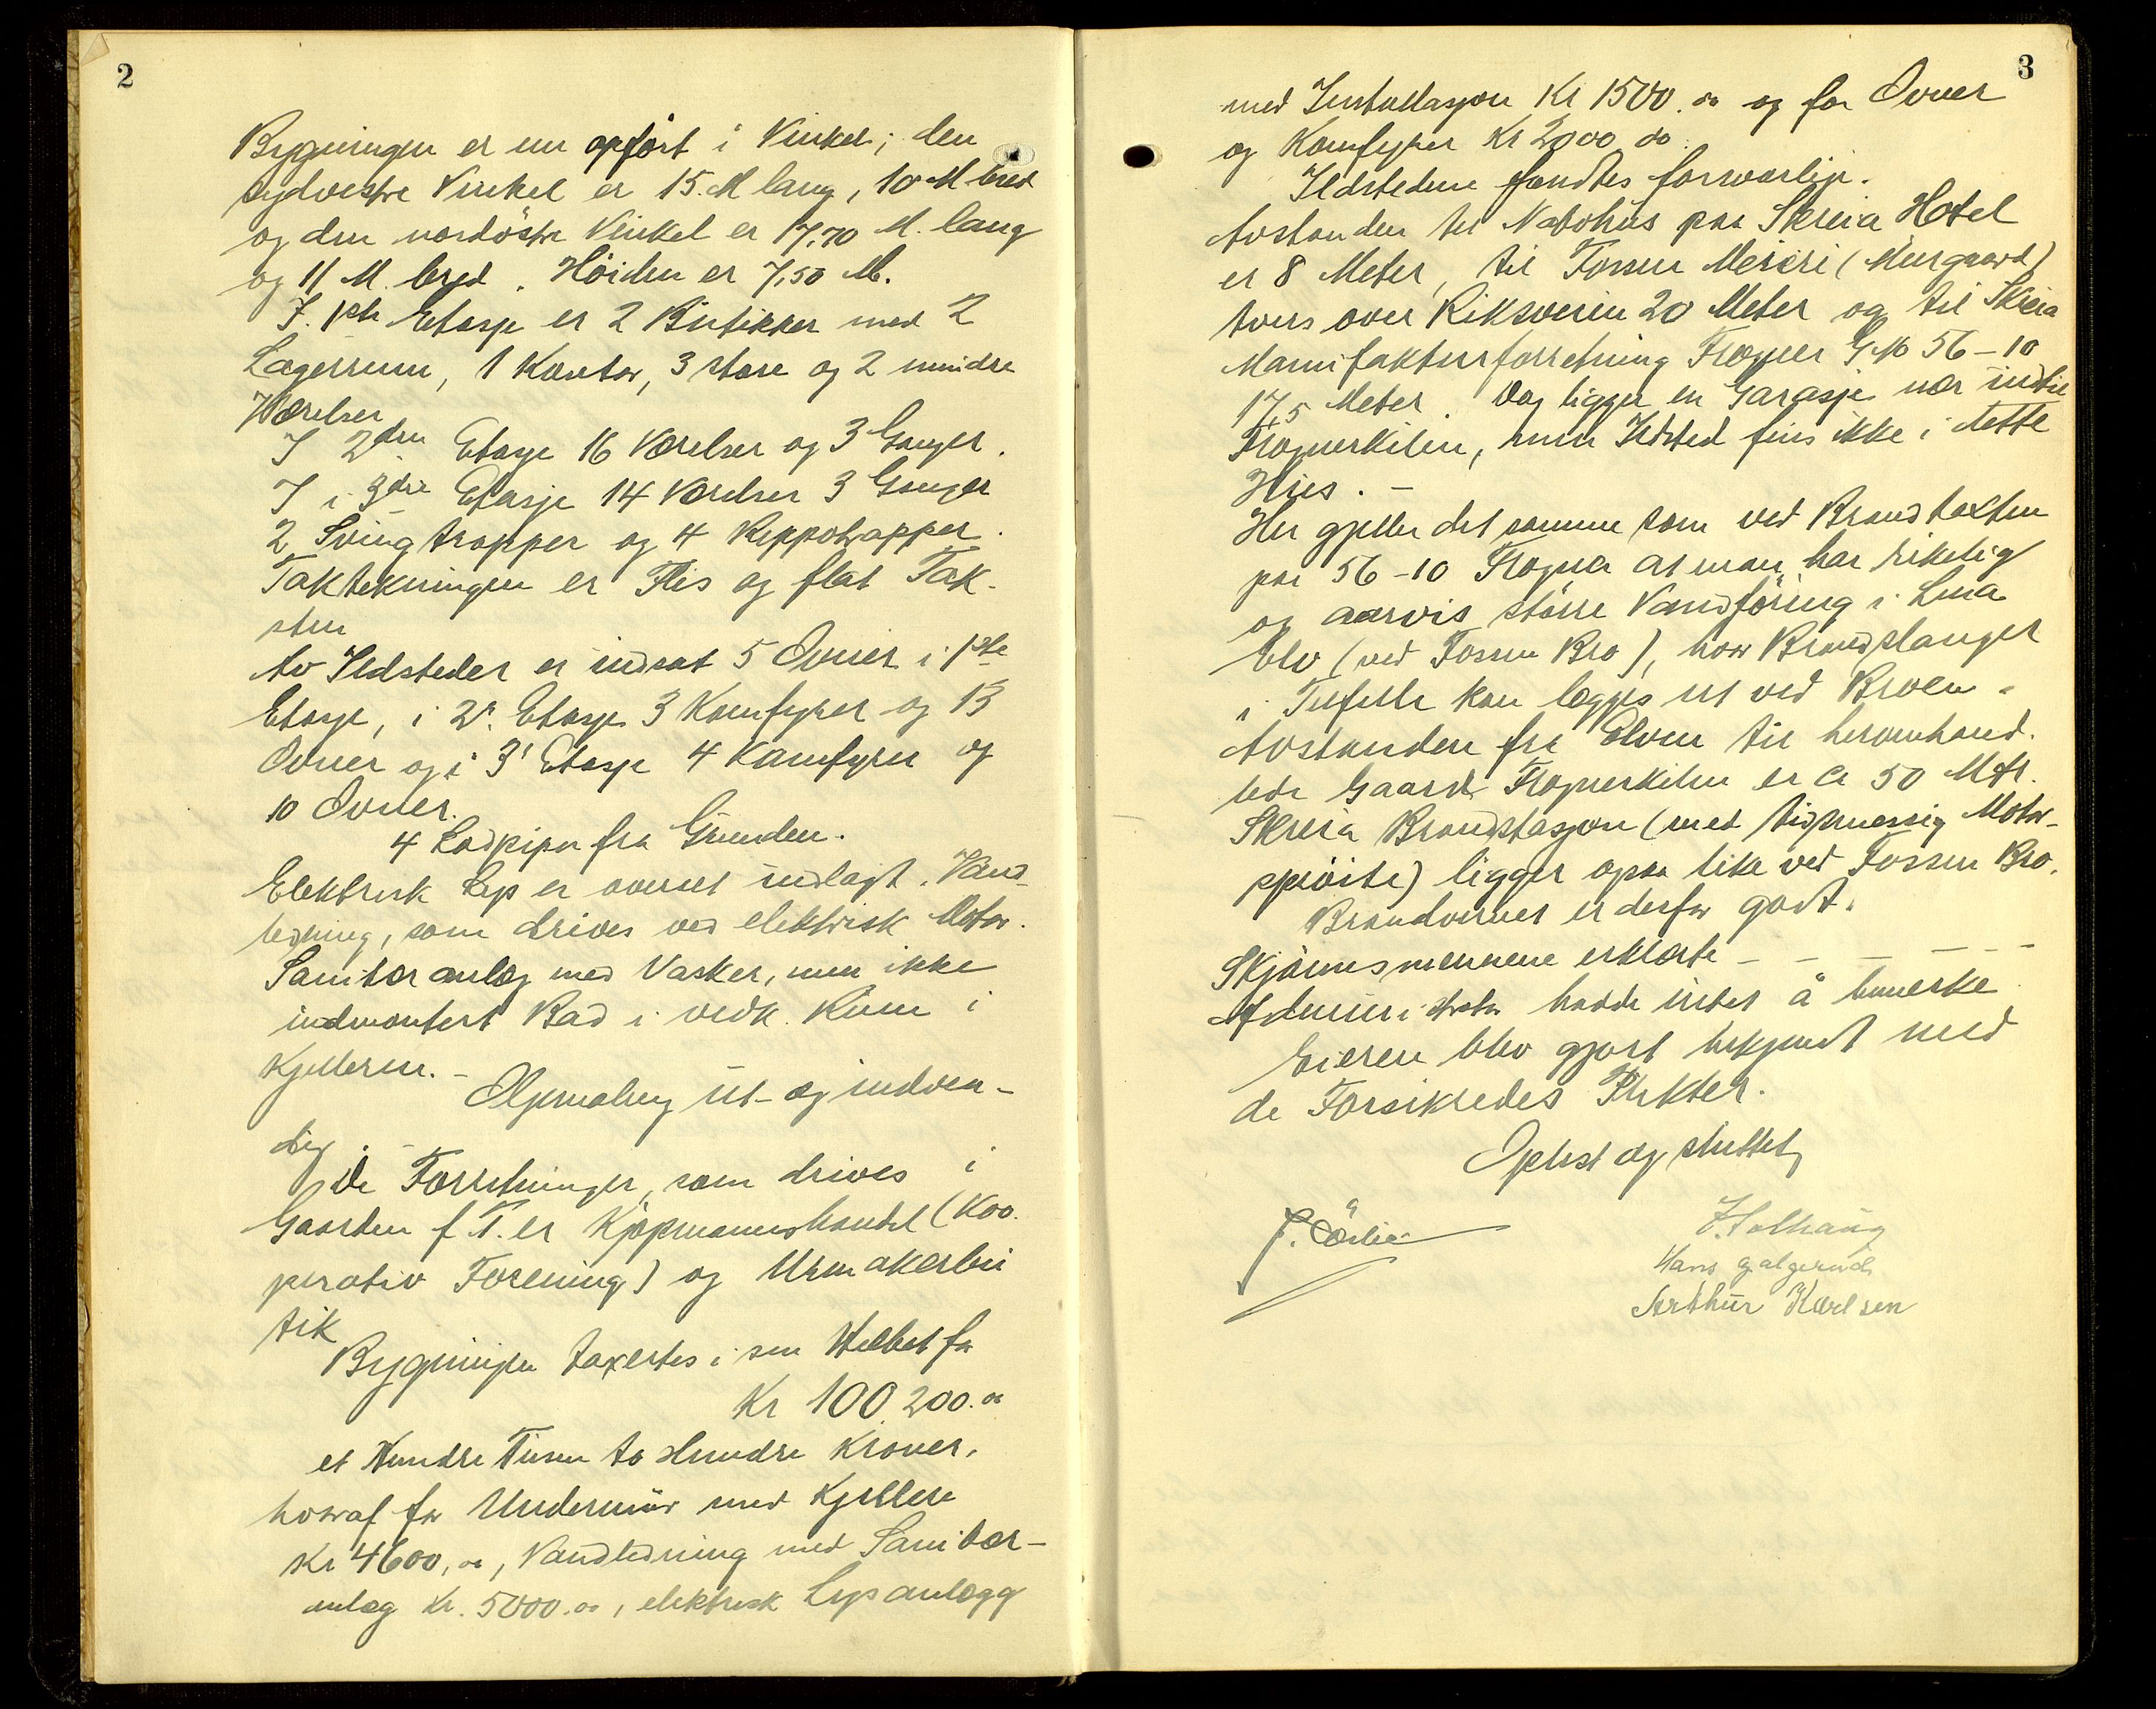 2
Bygningen er nu opført i Vinkel; den
sydvestre Vinkel er 15. M lang, 10 M bred
og den nordöstre Vinkel er 17,70 M. lang
og 11 M. bred. Höiden er 7,50 M.
I. 1ste Etasje er 2 Butikker med 2
Lagerrum, 1 Kontor, 3 store og 2 mindre
Værelser
I 2den Etasje 16 Værelser og 3 Ganger.
I i 3die Etasje 14 Værelser 3 Ganger
2 Svingtrapper og 4 Reppotrapper.
Taktekningen er Flis og flat Tak-
sten
Av Ildsteder er indsat 5 Ovner i 1ste
Etasje, i 2n. Etasje 3 Komfyrer og 13
Ovner og i 3' Etasje 4 Komfyrer og
10 Ovner.
4 Lodpiper fra Grunden.
Elektrisk Lys er overalt indlagt. Vand-
ledning, som drives ved elektrisk Motor.
Sanitær anlæg med Vasker, men ikke
indmontert Bad i vedk. Rum i
Kjelleren. -
Oljemaling ut- og indven-
dig.
De Forretninger, som drives i
Gaarden f. T. er Kjøpmannshandel (Koo-
perativ Forening) og Urmakerbu
tik
Bygningen taxertes i sin Helhet for
Kr 100.200.00
et Hundre Tusen to Hundre Kroner,
hvoraf for Undermur med Kjellere
Kr 4600,00, Vandledning med Sanitær-
anlæg Kr. 5000.00, elektrisk Lysanlægg
3
med Installasjon Kr 1500.00 og for Ovner
og Komfyrer Kr 2000 00.
Ildstedene fandtes forsvarlige.
Avstanden til Nabohus paa Skreia Hotel
er 8 Meter, til Fossen Meieri (Murgaard)
tvers over Riksveien 20 Meter og til Skreia
Manufakturforretning Frogner G No 56-10
17,5 Meter. Dog ligger en Garasje nær indtil
Frognerkilen, men Ildsted fins ikke i dette
Hus. -
Her gjelder det samme som ved Brandtaxten
paa 56-10 Frogner at man har rikelig
og aarvis större Vandföring i Lena
Elv (ved Fossen Bro), hvor Brandslanger
i Tilfelle kan lægges ut ved Broen.
Avstanden fra Elven til heromhand-
lede Gaard Frognerkilen er ca 50 Mtr.
Skreia Brandstasjon (med tidsmessig Motor-
spröite) ligger ogsaa like ved Fossen Bro.
Brandvernet er derfor godt.
Skjönnsmennene erklærte - - - - -
Administrator hadde intet å bemerke
Eieren blev gjort bekjendt med
de Forsikredes Plikter.
Oplest og sluttet,
J. Solhaug
Hans Galgerud
Arthur Karlsen